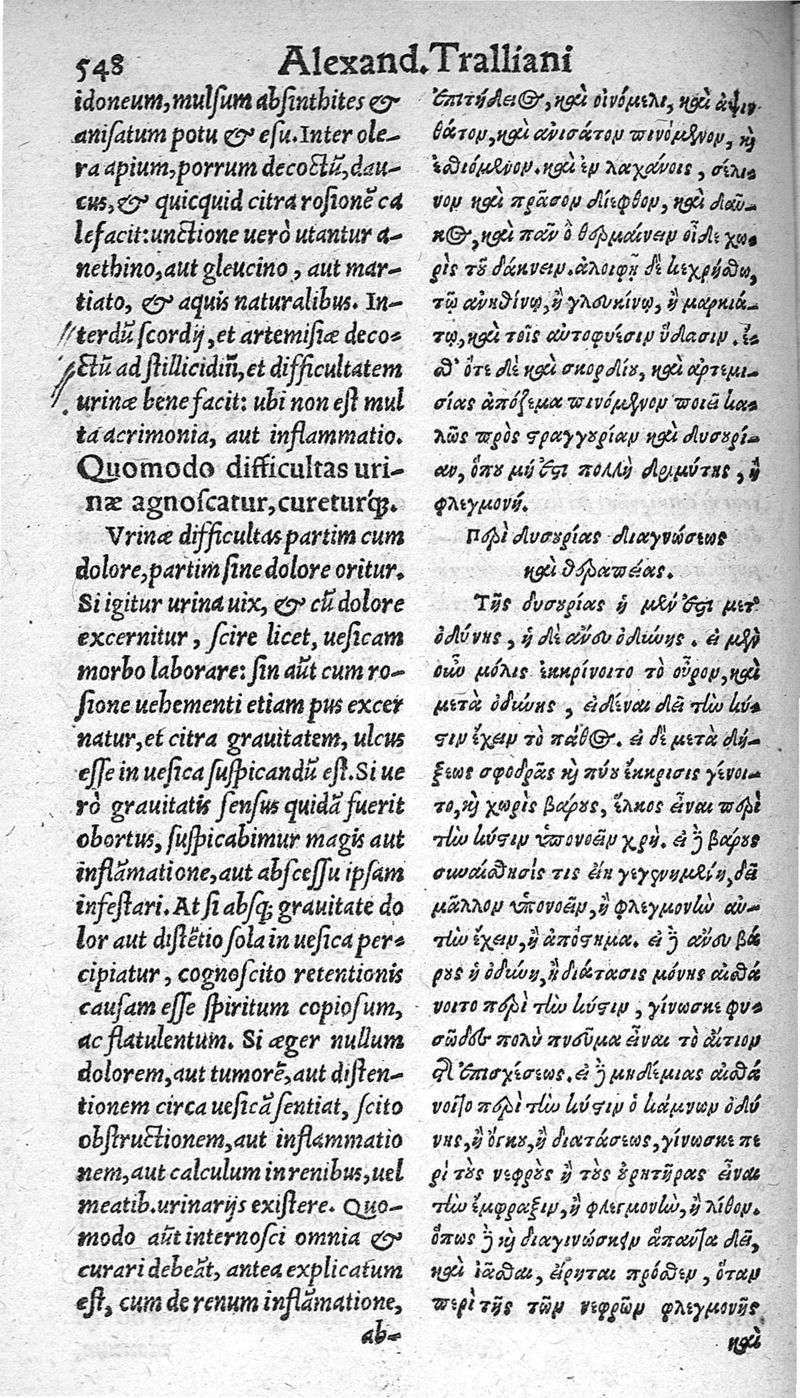 548 Alexand. Tralliani
idoneum, mulsum absinthites &
anisatum potu & esu. Inter ole-
ra apium, porrum decoctũ, dau-
cus, & quicquid citra rosionẽ ca
lefacit: unctione uerò utantur a-
nethino, aut gleucino, aut mar-
tiato, & aquis naturalibus. In-
terdũ scordij, et artemisiæ deco-
ctũ ad stillicidiũ, et difficultatem
urinæ bene facit: ubi non est mul
ta acrimonia, aut inflammatio.
Quomodo difficultas uri-
næ agnoscatur, cureturq́;.
Vrinæ difficultas partim cum
dolore, partim sine dolore oritur.
Si igitur urina uix, & cũ dolore
excernitur, scire licet, uesicam
morbo laborare: sin aũt cum ro-
sione uehementi etiam pus excer
natur, et citra grauitatem, ulcus
esse in uesica suspicandũ est. Si ue
rò grauitatis sensus quidã fuerit
obortus, suspicabimur magis aut
inflãmatione, aut abscessu ipsam
infestari. At si absq; grauitate do
lor aut distẽtio sola in uesica per-
cipiatur, cognoscito retentionis
causam esse spiritum copiosum,
ac flatulentum. Si æger nullum
dolorem, aut tumorẽ, aut disten-
tionem circa uesicã sentiat, scito
obstructionem, aut inflammatio
nem, aut calculum in renibus, uel
meatib. urinarijs existere. Quo-
modo aũt internosci omnia &
curari debeãt, antea explicatum
est, cum de renum inflãmatione,
ab-
ἐπιτήδειος, καὶ οἰνόμελι, καὶ ἀψιν-
θάτον, καὶ ἀνισάτον πινόμενον, καὶ
ἐσθιόμενον. καὶ ἐν λαχάνοις, σέλι-
νον καὶ πρᾶσον δίεφθον, καὶ δαῦ-
κος, καὶ πᾶν ὃ θερμαίνειν οἶδε χω-
ρὶς τοῦ δάκνειν. ἀλοιφῇ δὲ κεχρήσθω,
τῷ ἀνηθίνῳ, ἢ γλευκίνῳ, ἢ μαρκιά-
τῳ, καὶ τοῖς αὐτοφυέσιν ὕδασιν. ἔ-
σθ' ὅτε δὲ καὶ σκορδίου, καὶ ἀρτεμι-
σίας ἀπόζεμα πινόμενον ποιεῖ κα-
λῶς πρὸς στραγγουρίαν καὶ δυσουρί-
αν, ὅπου μή ἐστι πολλὴ δριμύτης, ἢ
φλεγμονή.
Περὶ δυσουρίας διαγνώσεως
καὶ θεραπείας.
Τῆς δυσουρίας ἡ μέν ἐστι μετ'
ὀδύνης, ἡ δὲ ἄνευ ὀδύνης. εἰ μὲν
οὖν μόλις ἐκκρίνοιτο τὸ οὖρον, καὶ
μετὰ ὀδύνης, εἰδέναι δεῖ τὴν κύ-
στιν ἔχειν τὸ πάθος. εἰ δὲ μετὰ δή-
ξεως σφοδρᾶς καὶ πύου ἔκκρισις γένοι-
το, καὶ χωρὶς βάρους, ἕλκος εἶναι περὶ
τὴν κύστιν ὑπονοεῖν χρή. εἰ δὲ βάρους
συναίσθησίς τις εἴη γεγενημένη, δεῖ
μᾶλλον ὑπονοεῖν, ἢ φλεγμονὴν αὐ-
τὴν ἔχειν, ἢ ἀπόστημα. εἰ δὲ ἄνευ βά
ρους ἡ ὀδύνη, ἢ διάτασις μόνης αἰσθά
νοιτο περὶ τὴν κύστιν, γίνωσκε φυ-
σῶδες πολὺ πνεῦμα εἶναι τὸ αἴτιον
τῆς ἐπισχέσεως. εἰ δὲ μηδεμιᾶς αἰσθά
νοιτο περὶ τὴν κύστιν ὁ κάμνων ὀδύ
νης, ἢ ὄγκου, ἢ διατάσεως, γίνωσκε πε
ρὶ τοὺς νεφροὺς ἢ τοὺς οὐρητῆρας εἶναι
τὴν ἔμφραξιν, ἢ φλεγμονὴν, ἢ λίθον.
ὅπως δὲ καὶ διαγινώσκειν ἅπαντα δεῖ,
καὶ ἰᾶσθαι, εἴρηται πρόσθεν, ὅταν
περὶ τῆς τῶν νεφρῶν φλεγμονῆς
καὶ